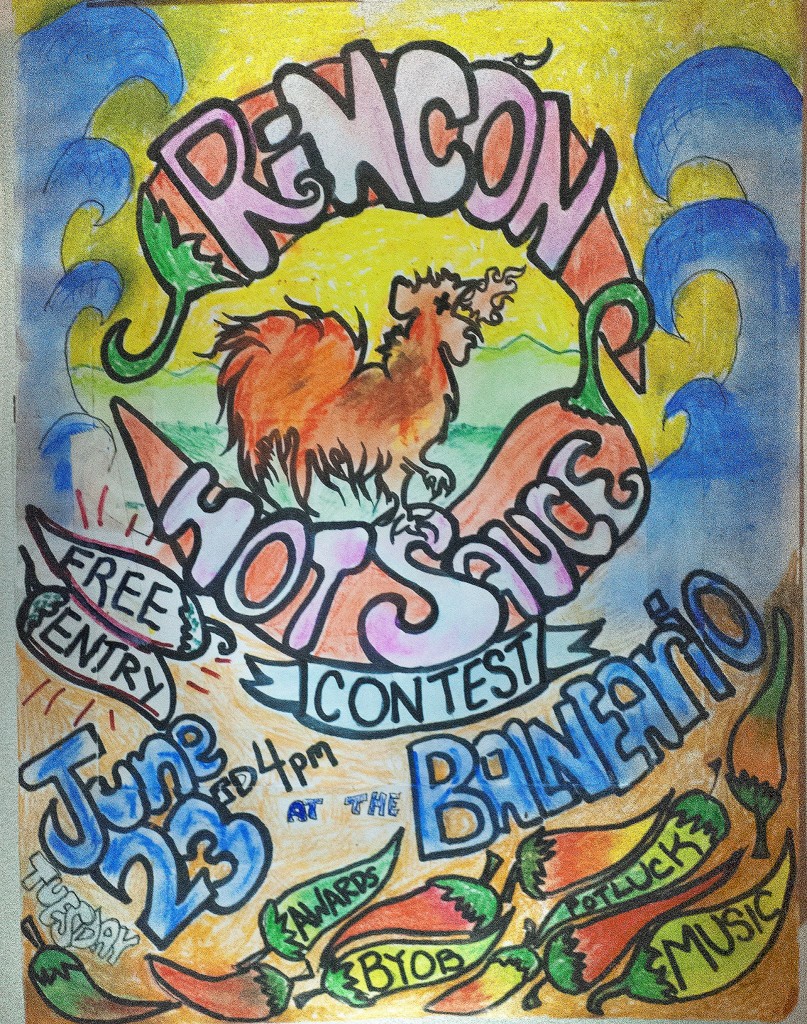 RiNCÓN
HOT SAUCE
CONTEST
FREE
ENTRY
June
23RD 4pm
AT THE BALNEARiO
TUESDAY
AWARDS
POTLUCK
BYOB
MUSIC